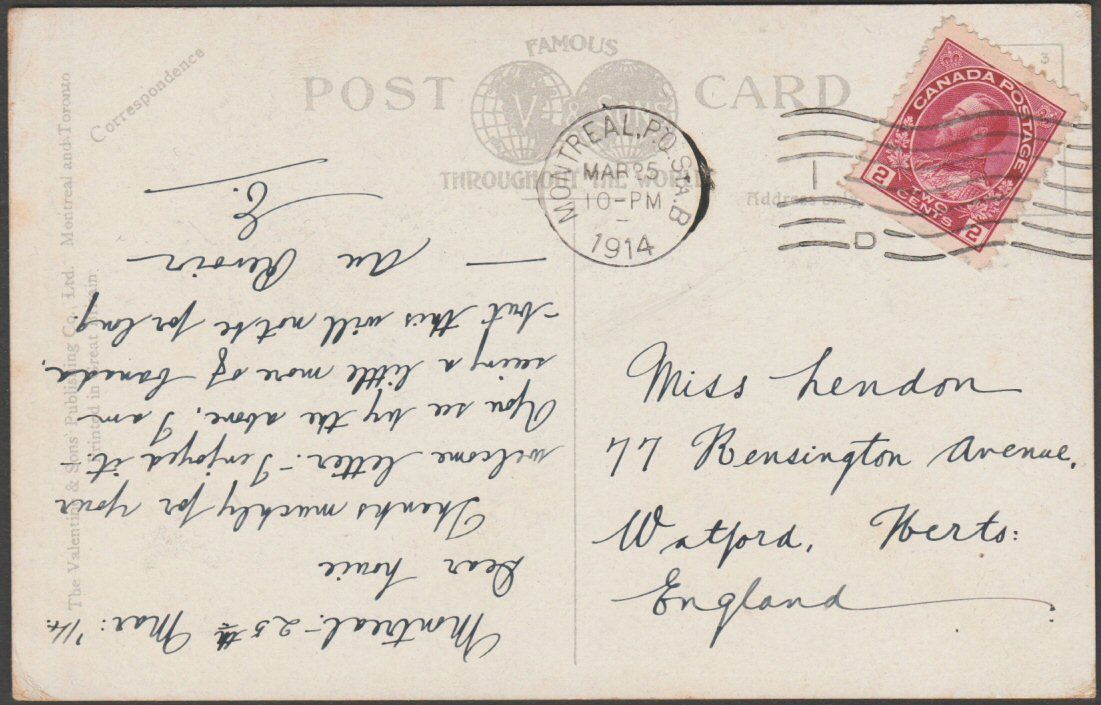 FAMOUS
POST CARD
V & SONS
THROUGHOUT THE WORLD
Correspondence
Address only
The Valentine & Sons' Publishing Co., Ltd. Montreal and Toronto
Printed in Great Britain.
3
MONTREAL, P.Q. STA. B
MAR 25
10-PM
1914
I
D
CANADA POSTAGE
2 TWO CENTS 2
Montreal - 25th Mar: '14.
Dear Louie
Thanks muchly for your
welcome letter - I enjoyed it.
You see by the above, I am
seeing a little more of Canada,
- but this will not be for long
- Au Revoir -
E.
Miss Lendon
77 Kensington Avenue,
Watford, Herts:
England